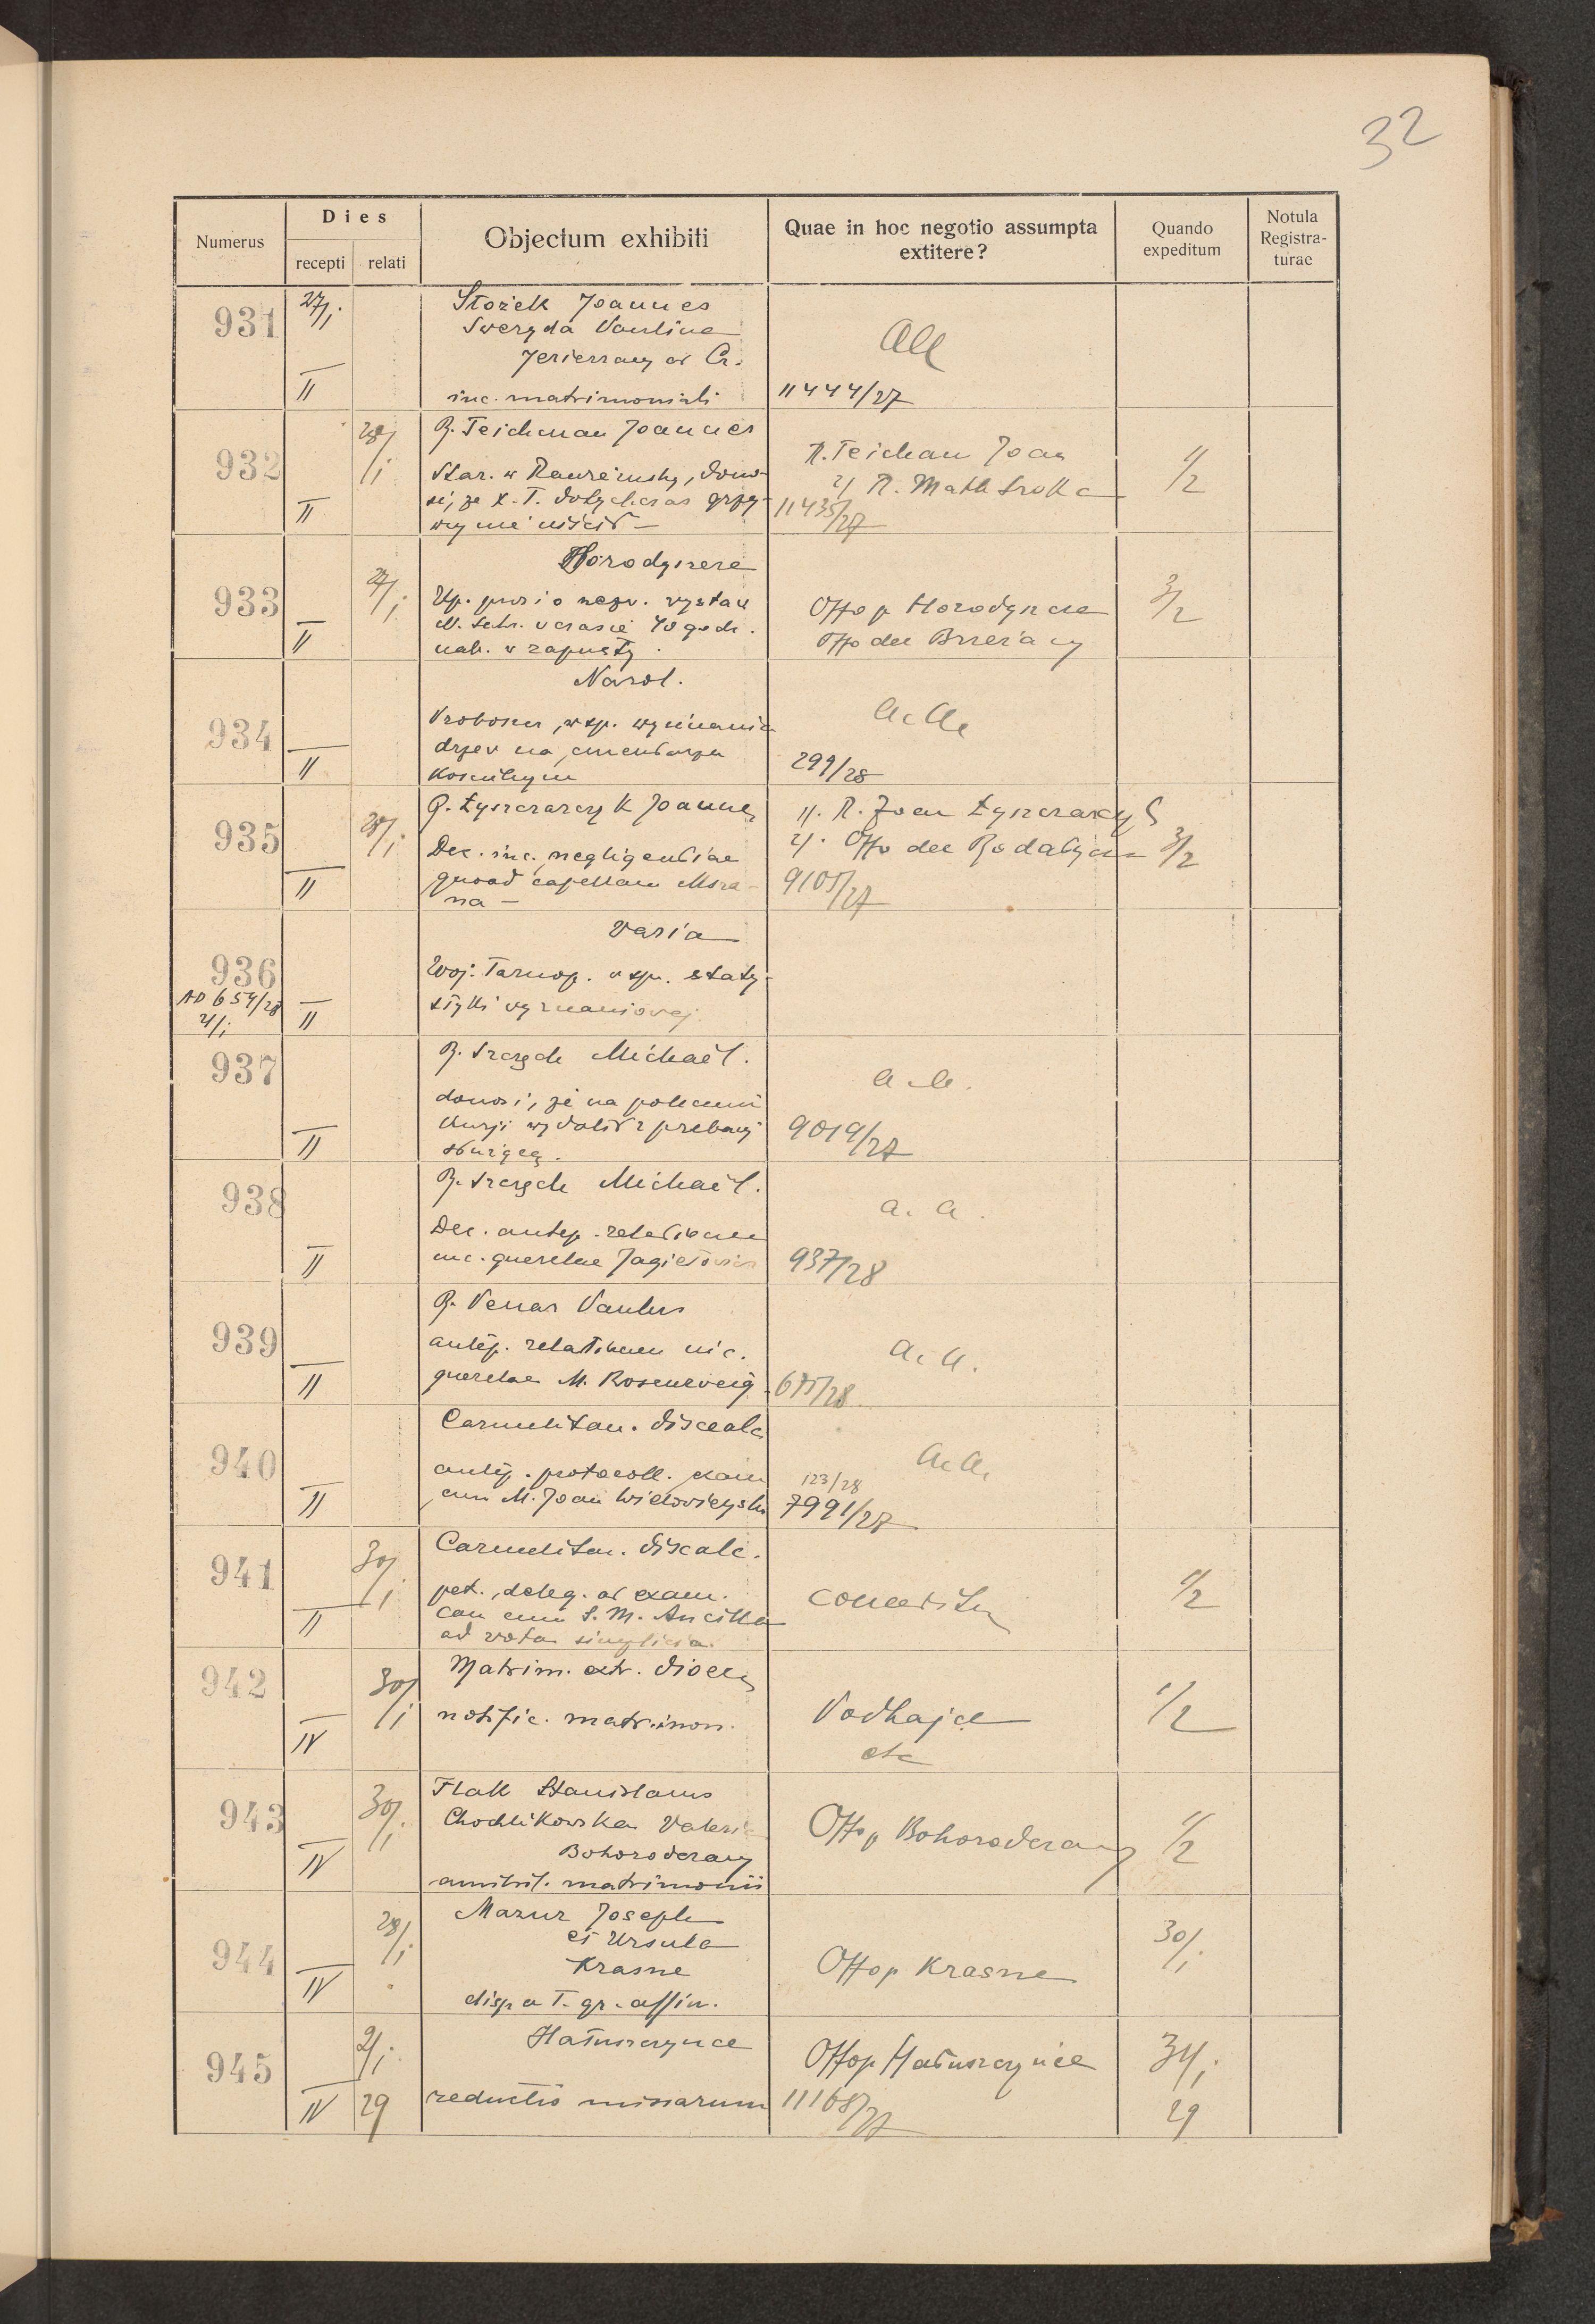 32
Numerus
Dies
recepti relati
Objectum exhibiti
Quae in hoc negotio assumpta
extitere?
Quando
expeditum
Notula
Registra-
turae
931
27/I
II
Stożek Joannes
Sweryda Paulina
inc. matrimoniali
11444/27
932
28/I
II
R. Teichman Joannes
Star. w Rawie ruskiej, dono-
si, że X. T. dotychczas grzy-
wny nie uiścił
R. Teichman Joan
2/
11435/27
1/2
933
27/I
II
Horodyszcze
M. Schr. w czasie 40 godz.
nab. w zapusty.
Offo p Horodyszcze
Offo dec Brzeżany
3/2
934
II
Narol.
Proboszcz, w sp. wycinania
drzew na cmentarzu
Kościelnym
a. a.
299/28
935
28/I
II
R. Łyszczarczyk Joannes
Dec. inc. negligentiae
quoad capellam Msza-
na
1/. R. Joan Łyszczarczyk
2/. Offo dec
9105/27
3/2
936
AD 654/28
II
Varia
Woj. Tarnop. w sp. staty-
styki wyznaniowej
937
II
R. Szczych Michaël.
donosi, że na polecenie
Kurji wydalił z plebanji
służącą.
a. a.
9019/27
938
II
R. Szczych Michaël.
Dec. antep. relationem
inc. querelae
a. a.
937/28
939
II
R. Penar Paulus
antep. relationem inc.
querelae M. Rosenzweig
a. a.
675/28
940
II
Carmelitan. discalc
antep. protocoll. exam
cum M. Joan Wielowieyska
a. a.
123/28
7991/27
941
30/I
II
Carmelitan. discalc.
pet. deleg. ad exam.
can cum S. M. Ancilla
ad vota simplicia.
conceditur
1/2
942
30/I
IV
Matrim. extr. dioec
notific. matrimon.
Podhajce
etc
1/2
943
30/I
IV
Flak Stanislaus
Chochlikowska Valeria
Bohorodczany
annihil. matrimonii
Offo p Bohorodczany
1/2
944
28/I
IV
Mazur Joseph
et Ursula
Krasne
disp a I. gr. affin.
Offo p Krasne
30/I
945
2/I
IV 29
Hałuszczyńce
reductio missarum
Offo p Hałuszczyńce
11168/27
31/I
29